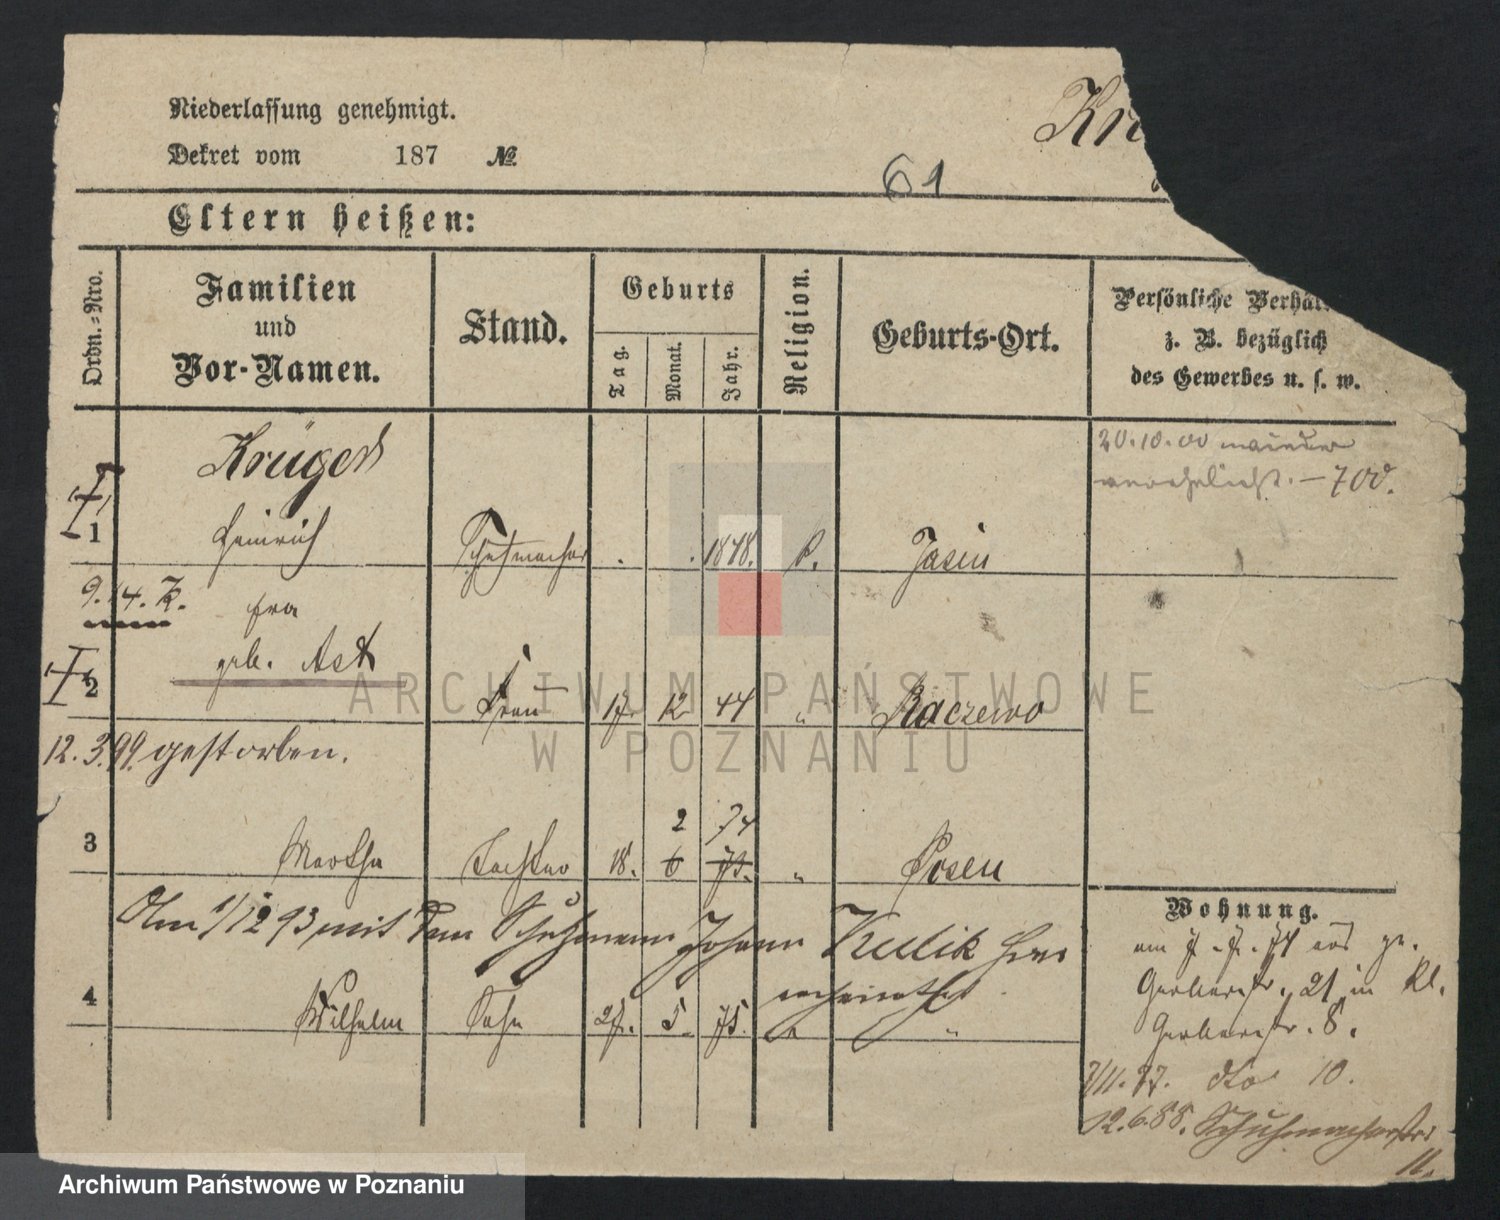 Niederlassung genehmigt.
Dekret vom 187 №
Kr
61
Eltern heißen:
Ordn.-Nro.
Familien
und
Vor-Namen.
Stand.
Geburts
Tag.
Monat.
Jahr.
Religion.
Geburts-Ort.
Persönliche Verhäl
z. B. bezüglich
des Gewerbes u. s. w.
20.10.00 wieder
verehelicht. – 700.
Krüger
1 Heinrich Schuhmacher 1848. k. Jasin
9.14. K.
Fra
geb. Ast
2 Frau 17. 12 44 " Raczewo
12.3.99. gestorben.
2 74
3 Martha Tochter 18. 6 73. " Posen
Am 1/12 93 mit dem Schutzmann Johann Kulik hier
verheirathet.
4 Wilhelm Sohn 27. 5. 75. " "
Wohnung.
am 7.7.74 aus gr.
Gerberstr. 21 in kl.
Gerberstr. 8.
7/11.77. dto 10.
12.6.88. Schuhmacherstr.
11.
ARCHIWUM PAŃSTWOWE
W POZNANIU
Archiwum Państwowe w Poznaniu